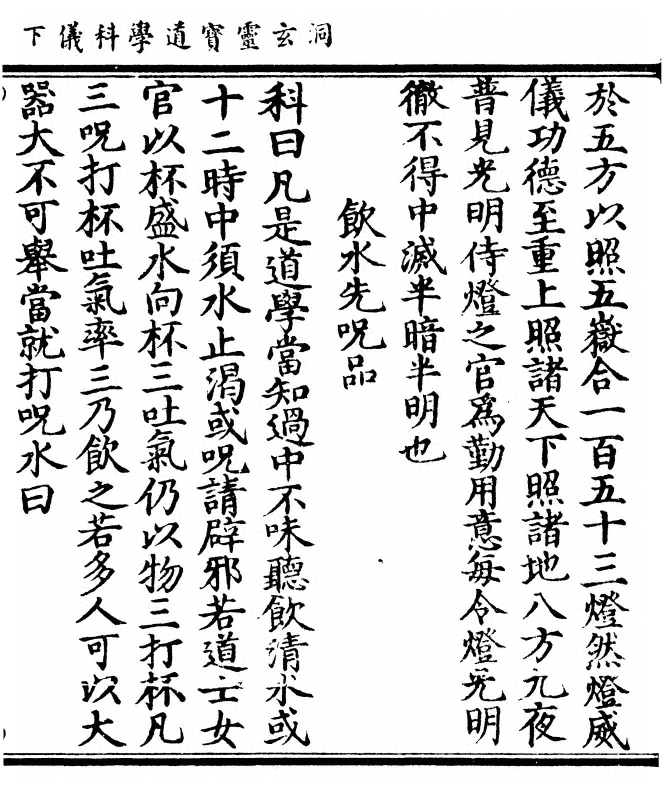 洞玄靈寶道學科儀下
於五方以照五嶽合一百五十三燈然燈威
儀功德至重上照諸天下照諸地八方九夜
普見光明侍燈之官爲勤用意每令燈光明
徹不得中滅半暗半明也
飲水先呪品
科曰凡是道學當知過中不味聽飲清水或
十二時中須水止渴或呪請辟邪若道士女
官以杯盛水向杯三吐氣仍以物三打杯凡
三呪打杯吐氣率三乃飲之若多人可以大
器大不可舉當就打呪水曰